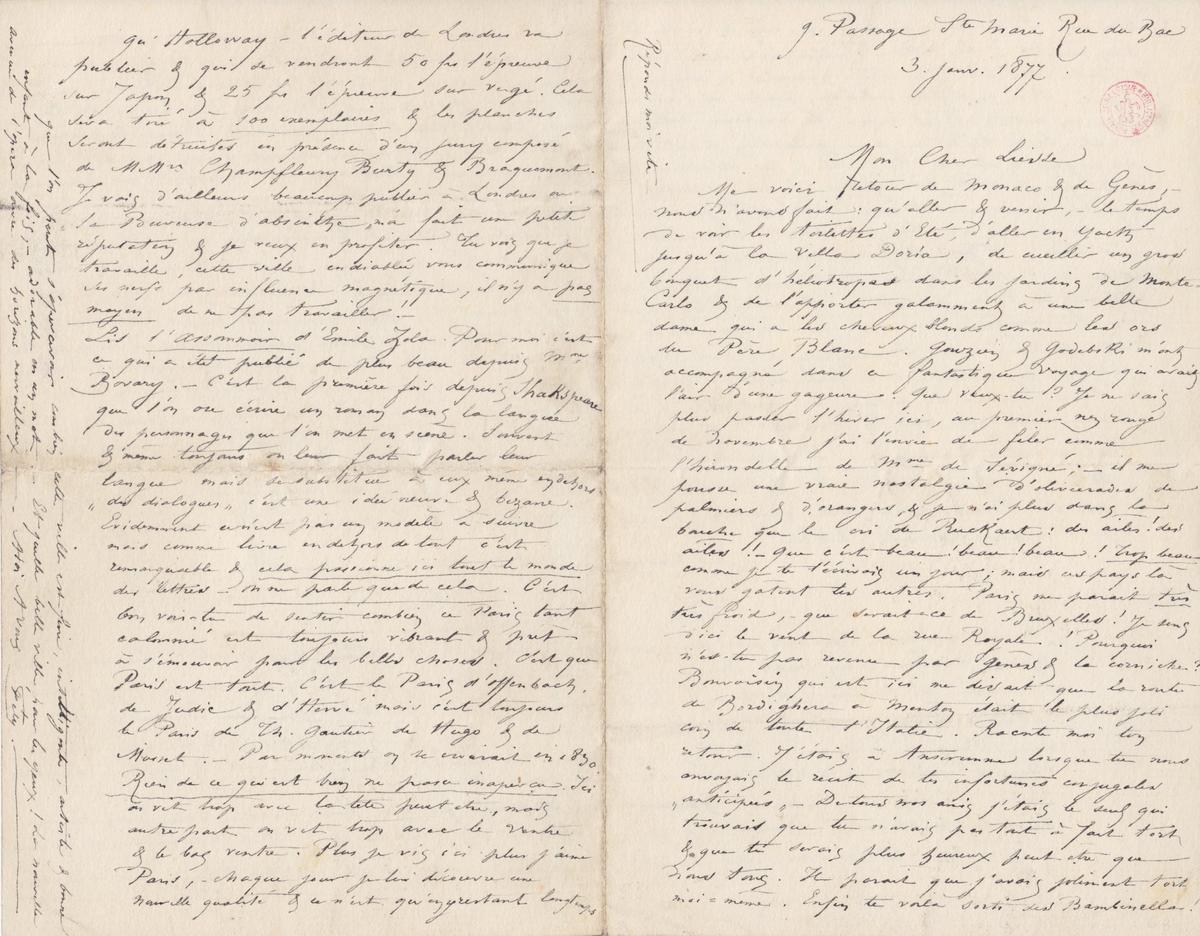 9. Passage Ste Marie Rue du Bac
3. Janv. 1877.
Réponds moi vite
Mon Cher Liesse
Me voici retour de Monaco & de Gênes, –
nous n'avons fait : qu'aller & venir, – le temps
de voir les toilettes d'Eté, d'aller en Yacht
jusqu'à la villa Doria, de cueillir un gros
bouquet d'héliotropes dans les jardins de Monte-
Carlo & de l'apporter galamment à une belle
dame qui a les cheveux blonds comme les ors
du Père Blanc. Gouzien & Godebski m'ont
accompagné dans ce fantastique voyage qui avait
l'air d'une gageure. Que veux-tu ? Je ne sais
plus passer l'hiver ici, au premier nez rouge
de novembre j'ai l'envie de filer comme
l'hirondelle de Mme de Sévigné ; – il me
pousse une vraie nostalgie d'oliveraies de
palmiers & d'orangers, & je n'ai plus dans la
bouche que le cri de Ruckaert : des ailes ! des
ailes ! – Que c'est beau ! beau ! beau ! Trop beau
comme je te l'écrivais un jour ; mais ces pays là
vous gâtent les autres. Paris me parait très
très froid, – que serait-ce de Bruxelles ! Je sens
d'ici le vent de la rue Royale. ! Pourquoi
n'es-tu pas revenu par Gênes & la corniche ?
Bonvoisin qui est ici me disait que la route
de Bordighera à Menton était le plus joli
coin de toute l'Italie. Raconte moi ton
retour. J'étais à Anseremme lorsque tu nous
envoyais le récit de tes infortunes conjugales
„anticipées„ – De tous nos amis j'étais le seul qui
trouvais que tu n'avais pas tout à fait tort
& que tu serais plus heureux peut etre que
nous tous. Il parait que j'avais joliment tort
moi-même. Enfin te voilà sorti des Bambinella !
qu'Holloway – l'éditeur de Londres va
publier & qui se vendront 50 frs l'épreuve
sur Japon & 25 frs l'épreuve sur vergé. Cela
sera tiré à 100 exemplaires & les planches
seront détruites en présence d'un jury composé
de MMrs Champfleury Burty & Bracquemont.
Je vais d'ailleurs beaucoup publier à Londres où
la Buveuse d'absinthe, m'a fait une petite
réputation & je veux en profiter. Tu vois que je
travaille, cette ville endiablée vous communique
ses nerfs par influence magnétique, il n'y a pas
moyen de ne pas travailler. –
Lis l'assommoir d'Emile Zola. Pour moi c'est
ce qui a été publié de plus beau depuis Mme
Bovary. – C'est la première fois depuis Shakspeare
que l'on ose écrire un roman dans la langue
des personnages que l'on met en scène. Souvent
& même toujours on leur fait parler leur
langue mais se substituer à eux même en dehors
„des dialogues„ c'est une idée neuve & bizarre.
Evidemment ce n'est pas un modèle à suivre
mais comme livre en dehors de tout c'est
remarquable & cela passionne ici tout le monde
des lettres – on ne parle que de cela. C'est
bon vois-tu de sentir combien ce Paris tant
calomnié est toujours vibrant & pret
à s'émouvoir pour les belles choses. C'est que
Paris est tout. C'est le Paris d'offenbach,
de Judic & d'Hervé mais c'est toujours
le Paris de Th. Gautier de Hugo & de
Musset. – Par moments on se croirait en 1830
Rien de ce qui est bien ne passe inaperçu. Ici
on vit trop avec la tête peut etre, mais
autre part on vit trop avec le ventre
& le bas ventre. Plus je vis ici plus j'aime
Paris, – chaque jour je lui découvre une
nouvelle qualité & ce n'est qu'en y restant longtemps
que l'on peut s'apercevoir combien cette ville est fine, intelligente – artiste & bonne
enfant à la fois, – adorable en un mot. – Et quelle belle ville, pour les yeux ! La nouvelle
avenue de l'opéra ouvre des horizons merveilleux – À toi A vous Fély.